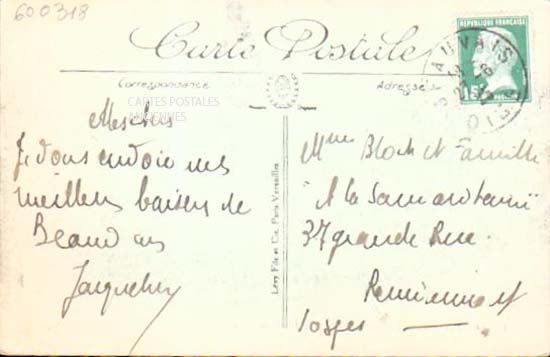 600318
Carte Postale
Correspondance
Adresse
CARTES POSTALES
ANCIENNES
RÉPUBLIQUE FRANÇAISE
15c
BEAUVAIS
OISE
Mes chers
Je vous envoie mes
meilleurs baisers de
Beauvais
Jacqueline
Lévy Fils et Cie, Paris Versailles
Mme Bloch et Famille
"A la Samaritaine"
37 grande Rue
Remiremont
Vosges